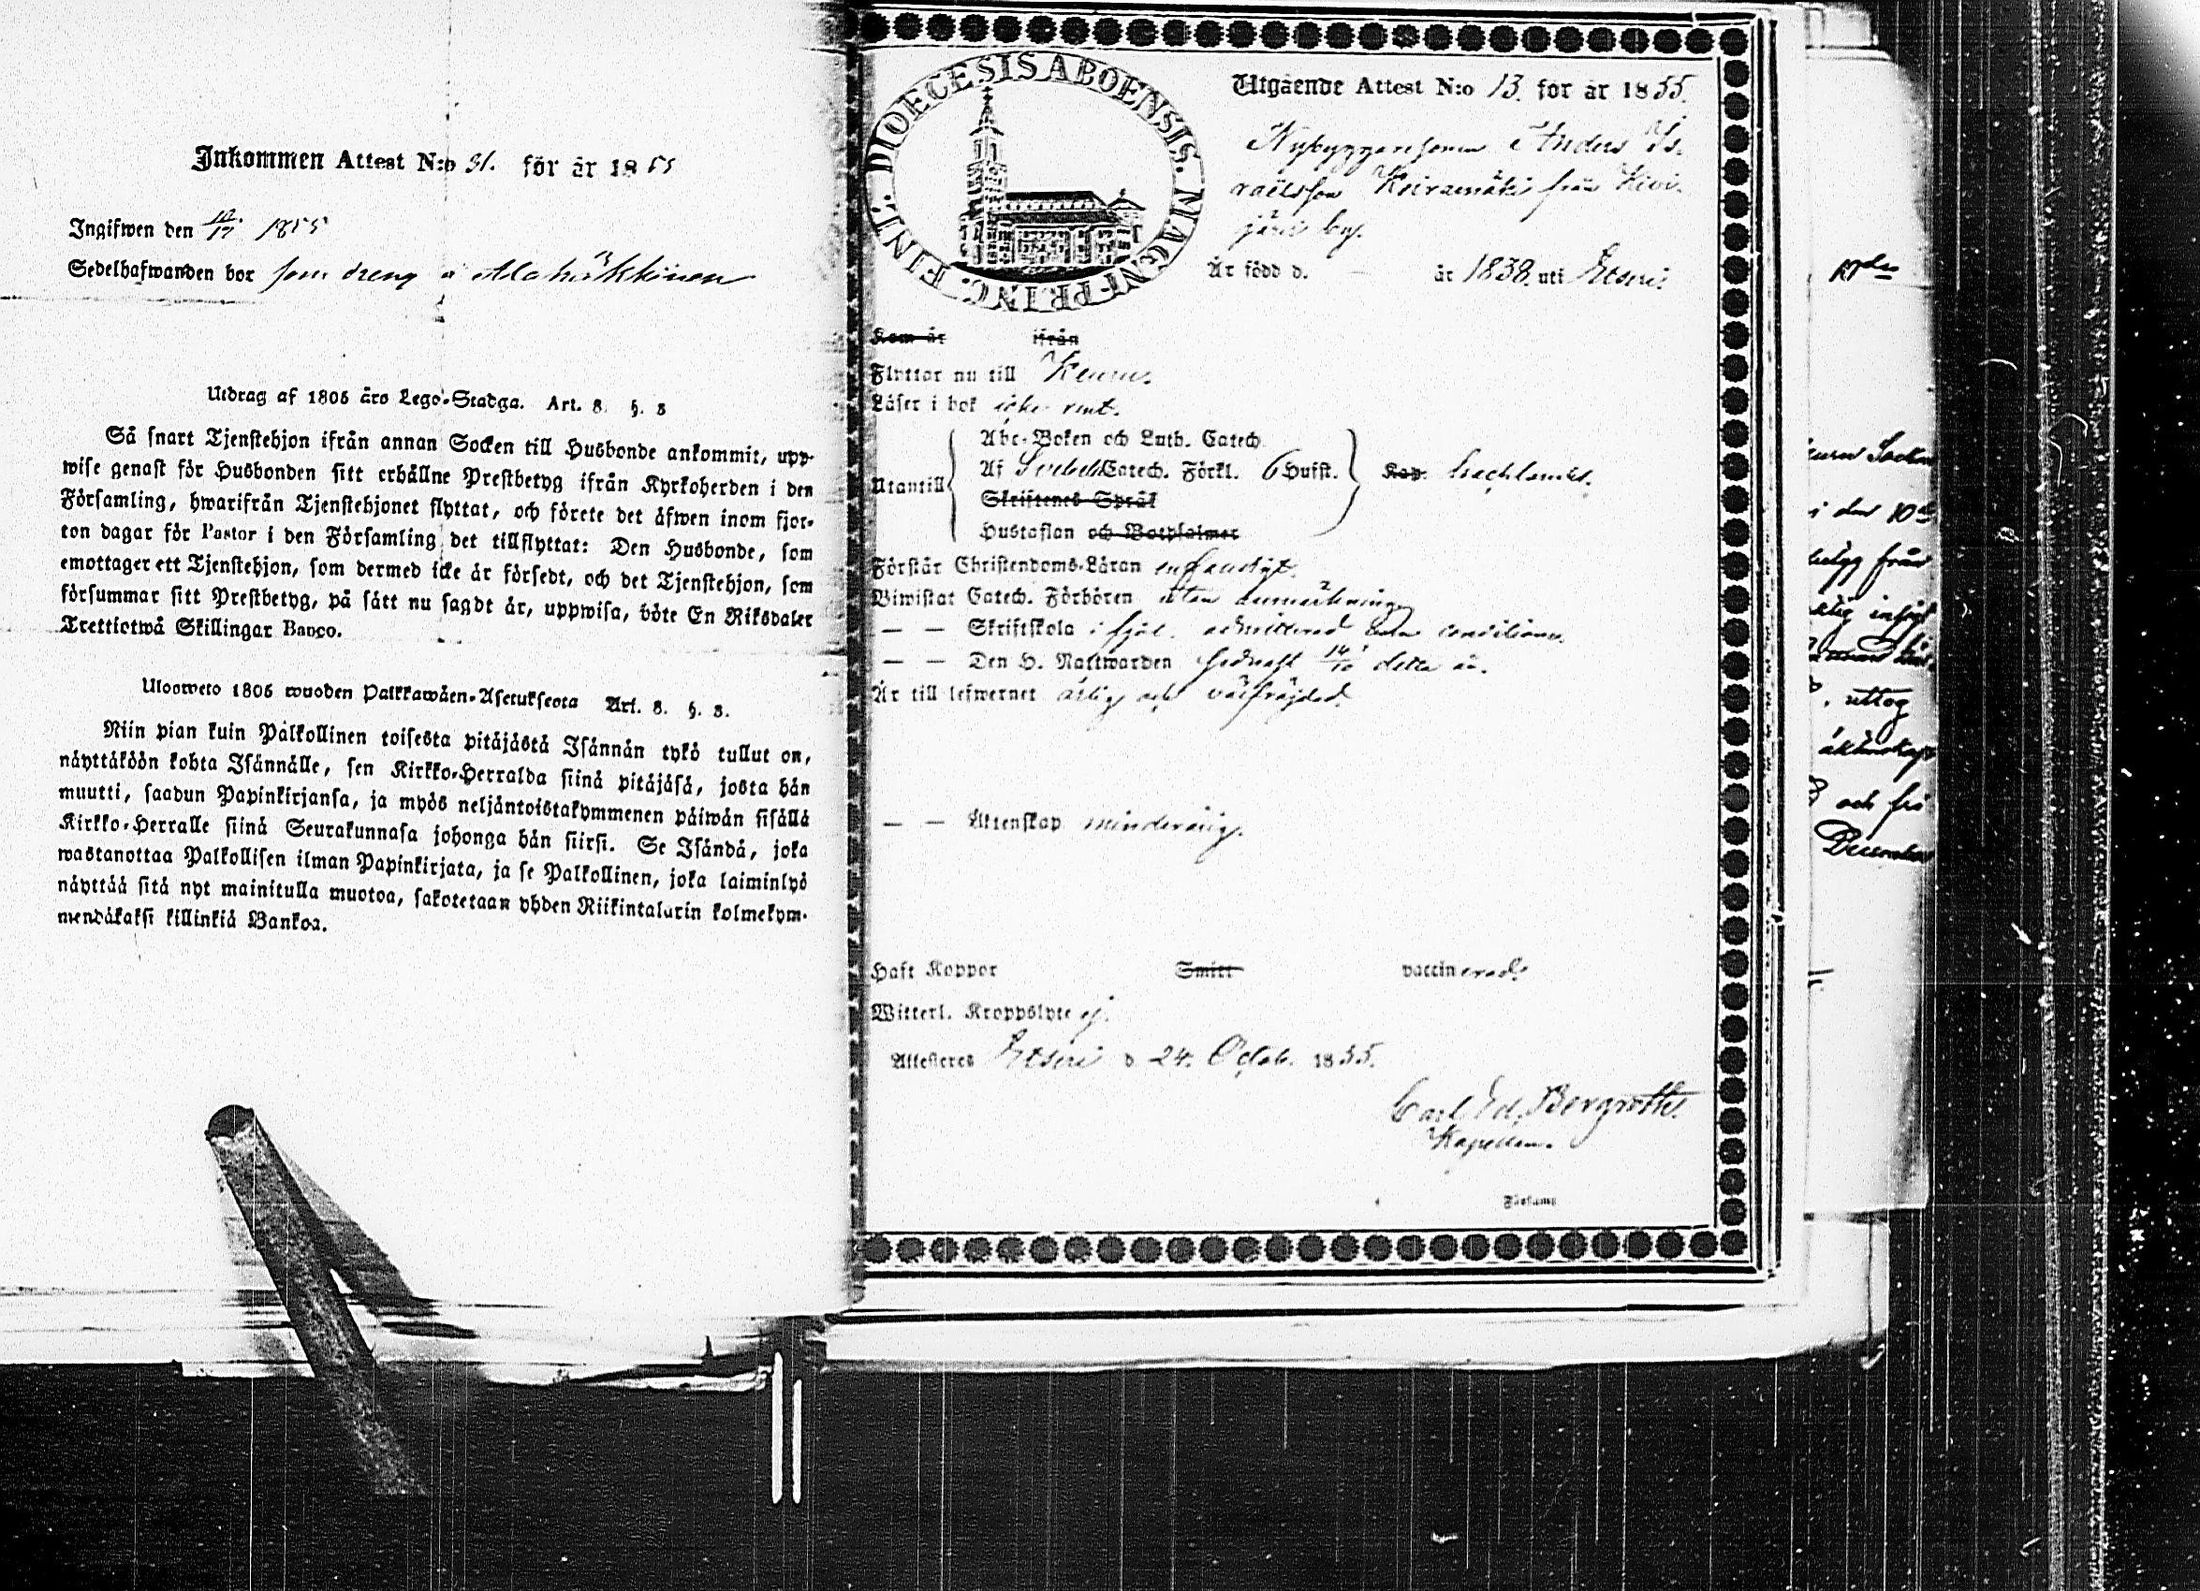 Inkommen Attest N:o 31. för år 1855
Ingifwen den 10/12 1855
Sedelhafwanden bor som dreng å Alahäkkinen
Utdrag af 1805 års Lego-Stadga. Art. 8. §. 3
Så snart Tjenstehjon ifrån annan Socken till Husbonde ankommit, upp-
wise genast för Husbonden sitt erhållne Prestbetyg ifrån Kyrkoherden i den
Församling, hwarifrån Tjenstehjonet flyttat, och förete det äfwen inom fjor-
ton dagar för Pastor i den Församling det tillflyttat: Den Husbonde, som
emottager ett Tjenstehjon, som dermed icke är försedt, och det Tjenstehjon, som
försummar sitt Prestbetyg, på sätt nu sagdt är, uppwisa, böte En Riksdaler
Trettiotwå Skillingar Banco.
Ulosweto 1805 wuoden Palkkawäen-Asetuksesta Art. 8. §. 3.
Niin pian kuin Palkollinen toisesta pitäjästä Isännän tykö tullut on,
näyttäköön kohta Isännälle, sen Kirkko-Herralda siinä pitäjäsä, josta hän
muutti, saadun Papinkirjansa, ja myös neljäntoistakymmenen päiwän sisällä
Kirkko-Herralle siinä Seurakunnasa johonga hän siirsi. Se Isändä, joka
wastanottaa Palkollisen ilman Papinkirjata, ja se Palkollinen, joka laiminlyö
näyttää sitä nyt mainitulla muotoa, sakotetaan yhden Riikintalarin kolmekym-
mendäkaksi killinkiä Bankoa.
DIOECESIS ABOENSIS. MAGNI PRINC. FINL.
Utgående Attest N:o 13. för år 1855.
Nybyggaresonen Anders Is-
raelsson Koiramäki från Kivi-
järvi by.
Är född d. — år 1838. uti Etseri.
Kom år ifrån
Flyttar nu till Keuru.
Läser i bok icke rent.
Utantill
Abc-Boken och Luth. Catech.
Af Svebelii Catech. Förkl. 6 Hufst.
Kap. hachlamdt.
Skriftenes Språk
Hustaflan och Botpsalmer
Förstår Christendoms-Läran enfaldigt.
Biwistat Catech. Förhören utan anmärkning
— — Skriftskola admitterad conditione.
— — Den H. Nattwarden sednast 14/10 detta år.
Är till lefwernet ärlig och välfrejdad.
— — Äktenskap minderårig.
Haft Koppor Smitt vaccinerad.
Witterl. Kroppslyte ej.
Attesteres Etseri d. 24. Octob. 1855.
Carl Ed. Bergroth.
Kapellan.
Församl
Socken
i den 10de
betyg från
, uttog
äktenskap
och frö
December